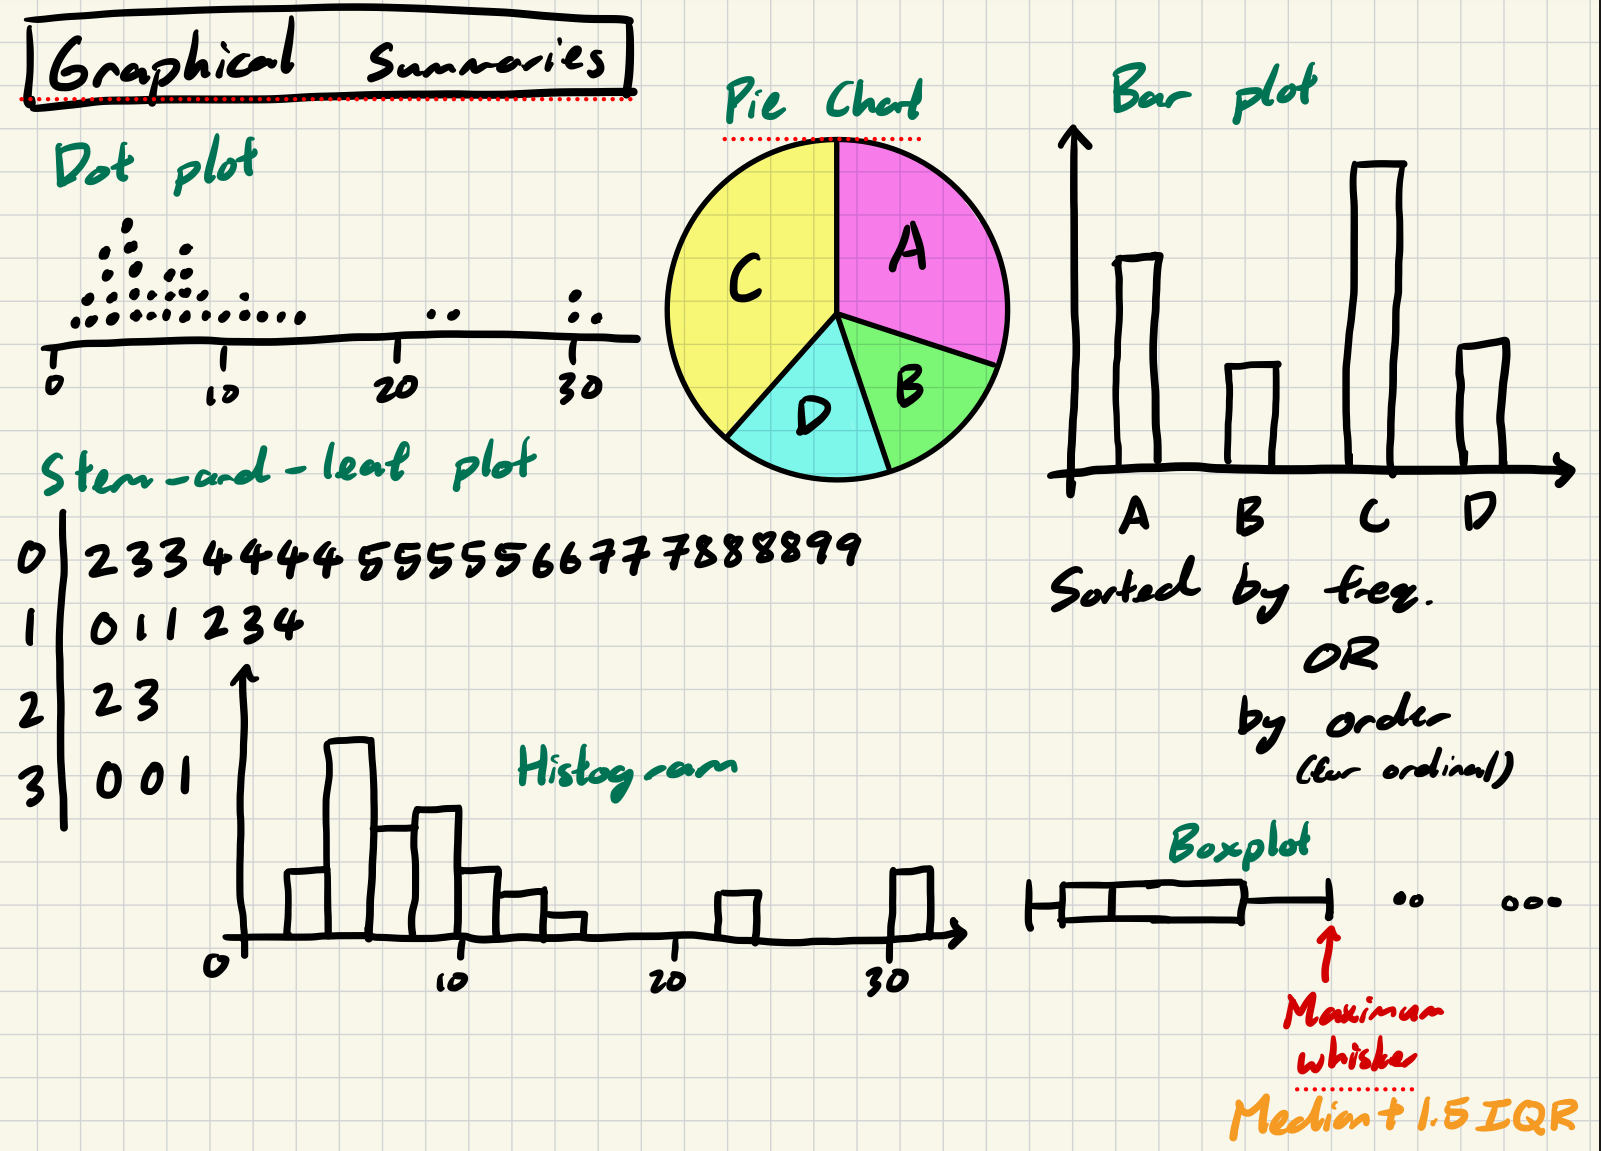 Graphical Summaries
Dot plot
0 10 20 30
Pie Chart
A
B
C
D
Bar plot
A B C D
Sorted by freq.
OR
by order
(for ordinal)
Stem-and-leaf plot
0 2 3 3 4 4 4 4 5 5 5 5 5 6 6 7 7 7 8 8 8 8 9 9
1 0 1 1 2 3 4
2 2 3
3 0 0 1
Histogram
0 10 20 30
Boxplot
Maximum
whisker
Median + 1.5 IQR